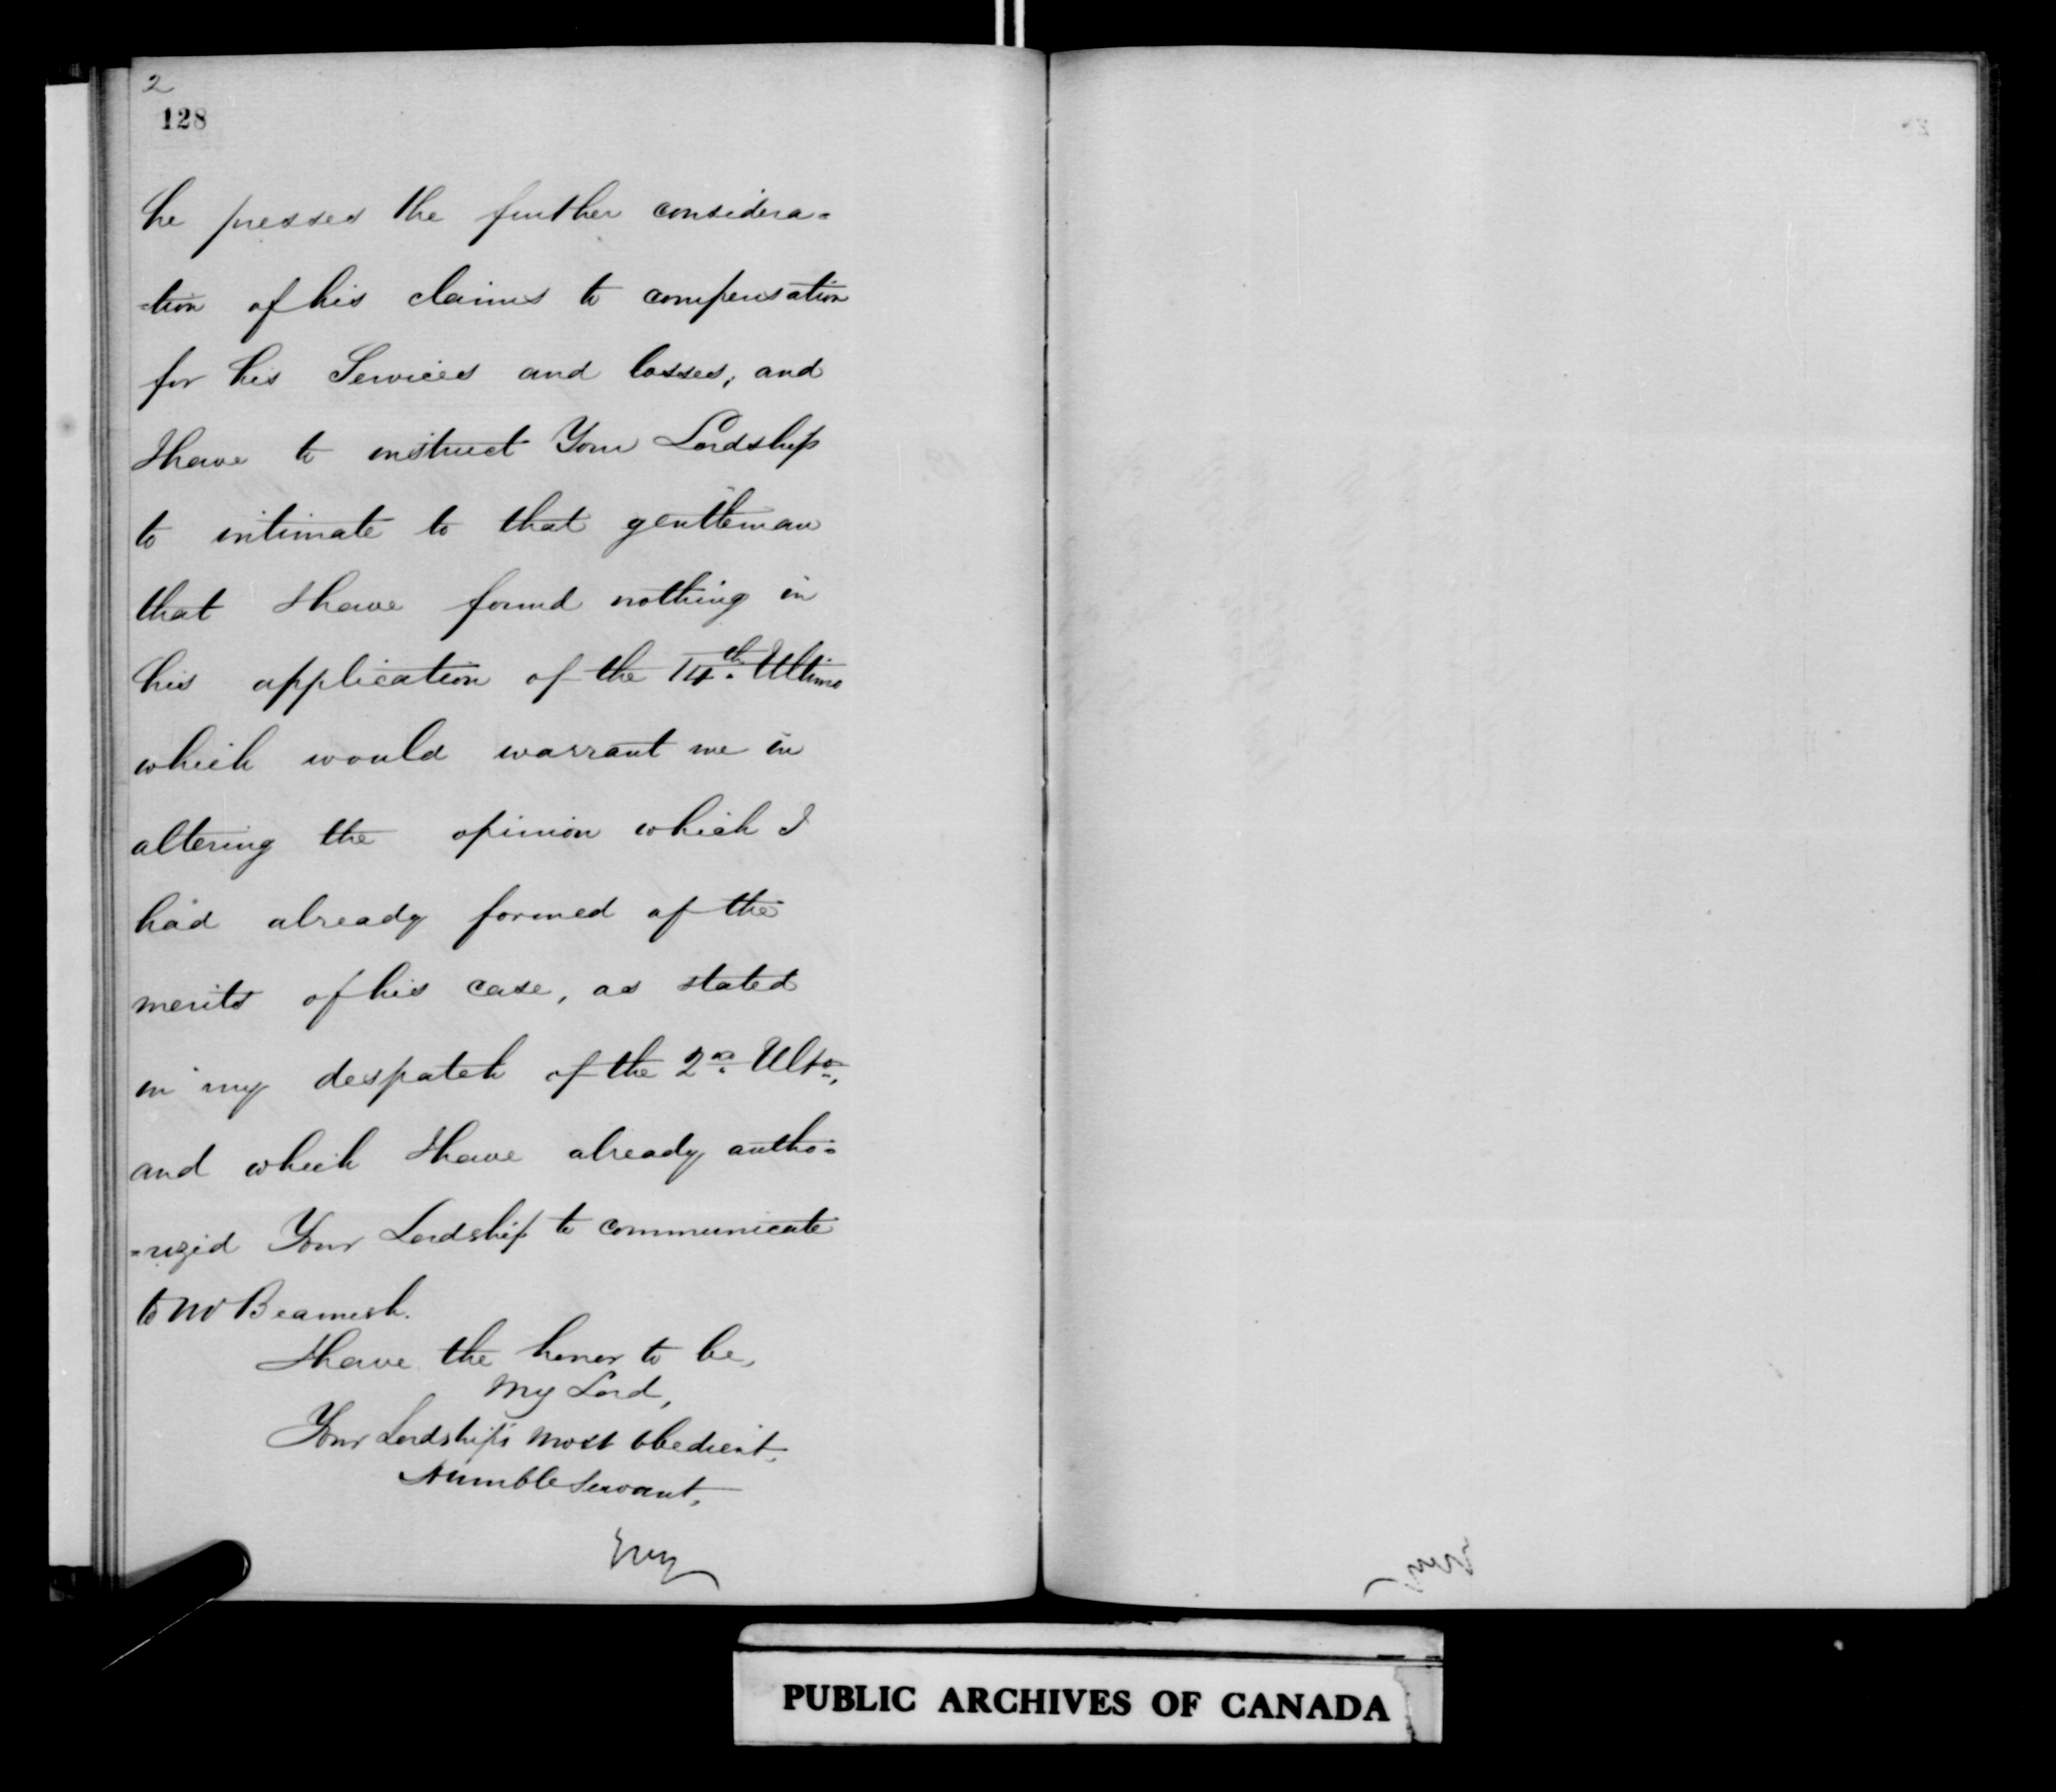 2
128
he presses the further considera=
=tion of his claims to compensation
for his Services and losses, and
I have to instruct Your Lordship
to intimate to that gentleman
that I have found nothing in
his application of the 14th. Ultimo
which would warrant me in
altering the opinion which I
had already formed of the
merits of his case, as stated
in my despatch of the 2nd. Ulto,
and which I have already autho=
=rized Your Lordship to communicate
to Mr Beamish.
I have the honor to be,
My Lord,
Your Lordship's most obedient,
Humble Servant,
Grey
PUBLIC ARCHIVES OF CANADA